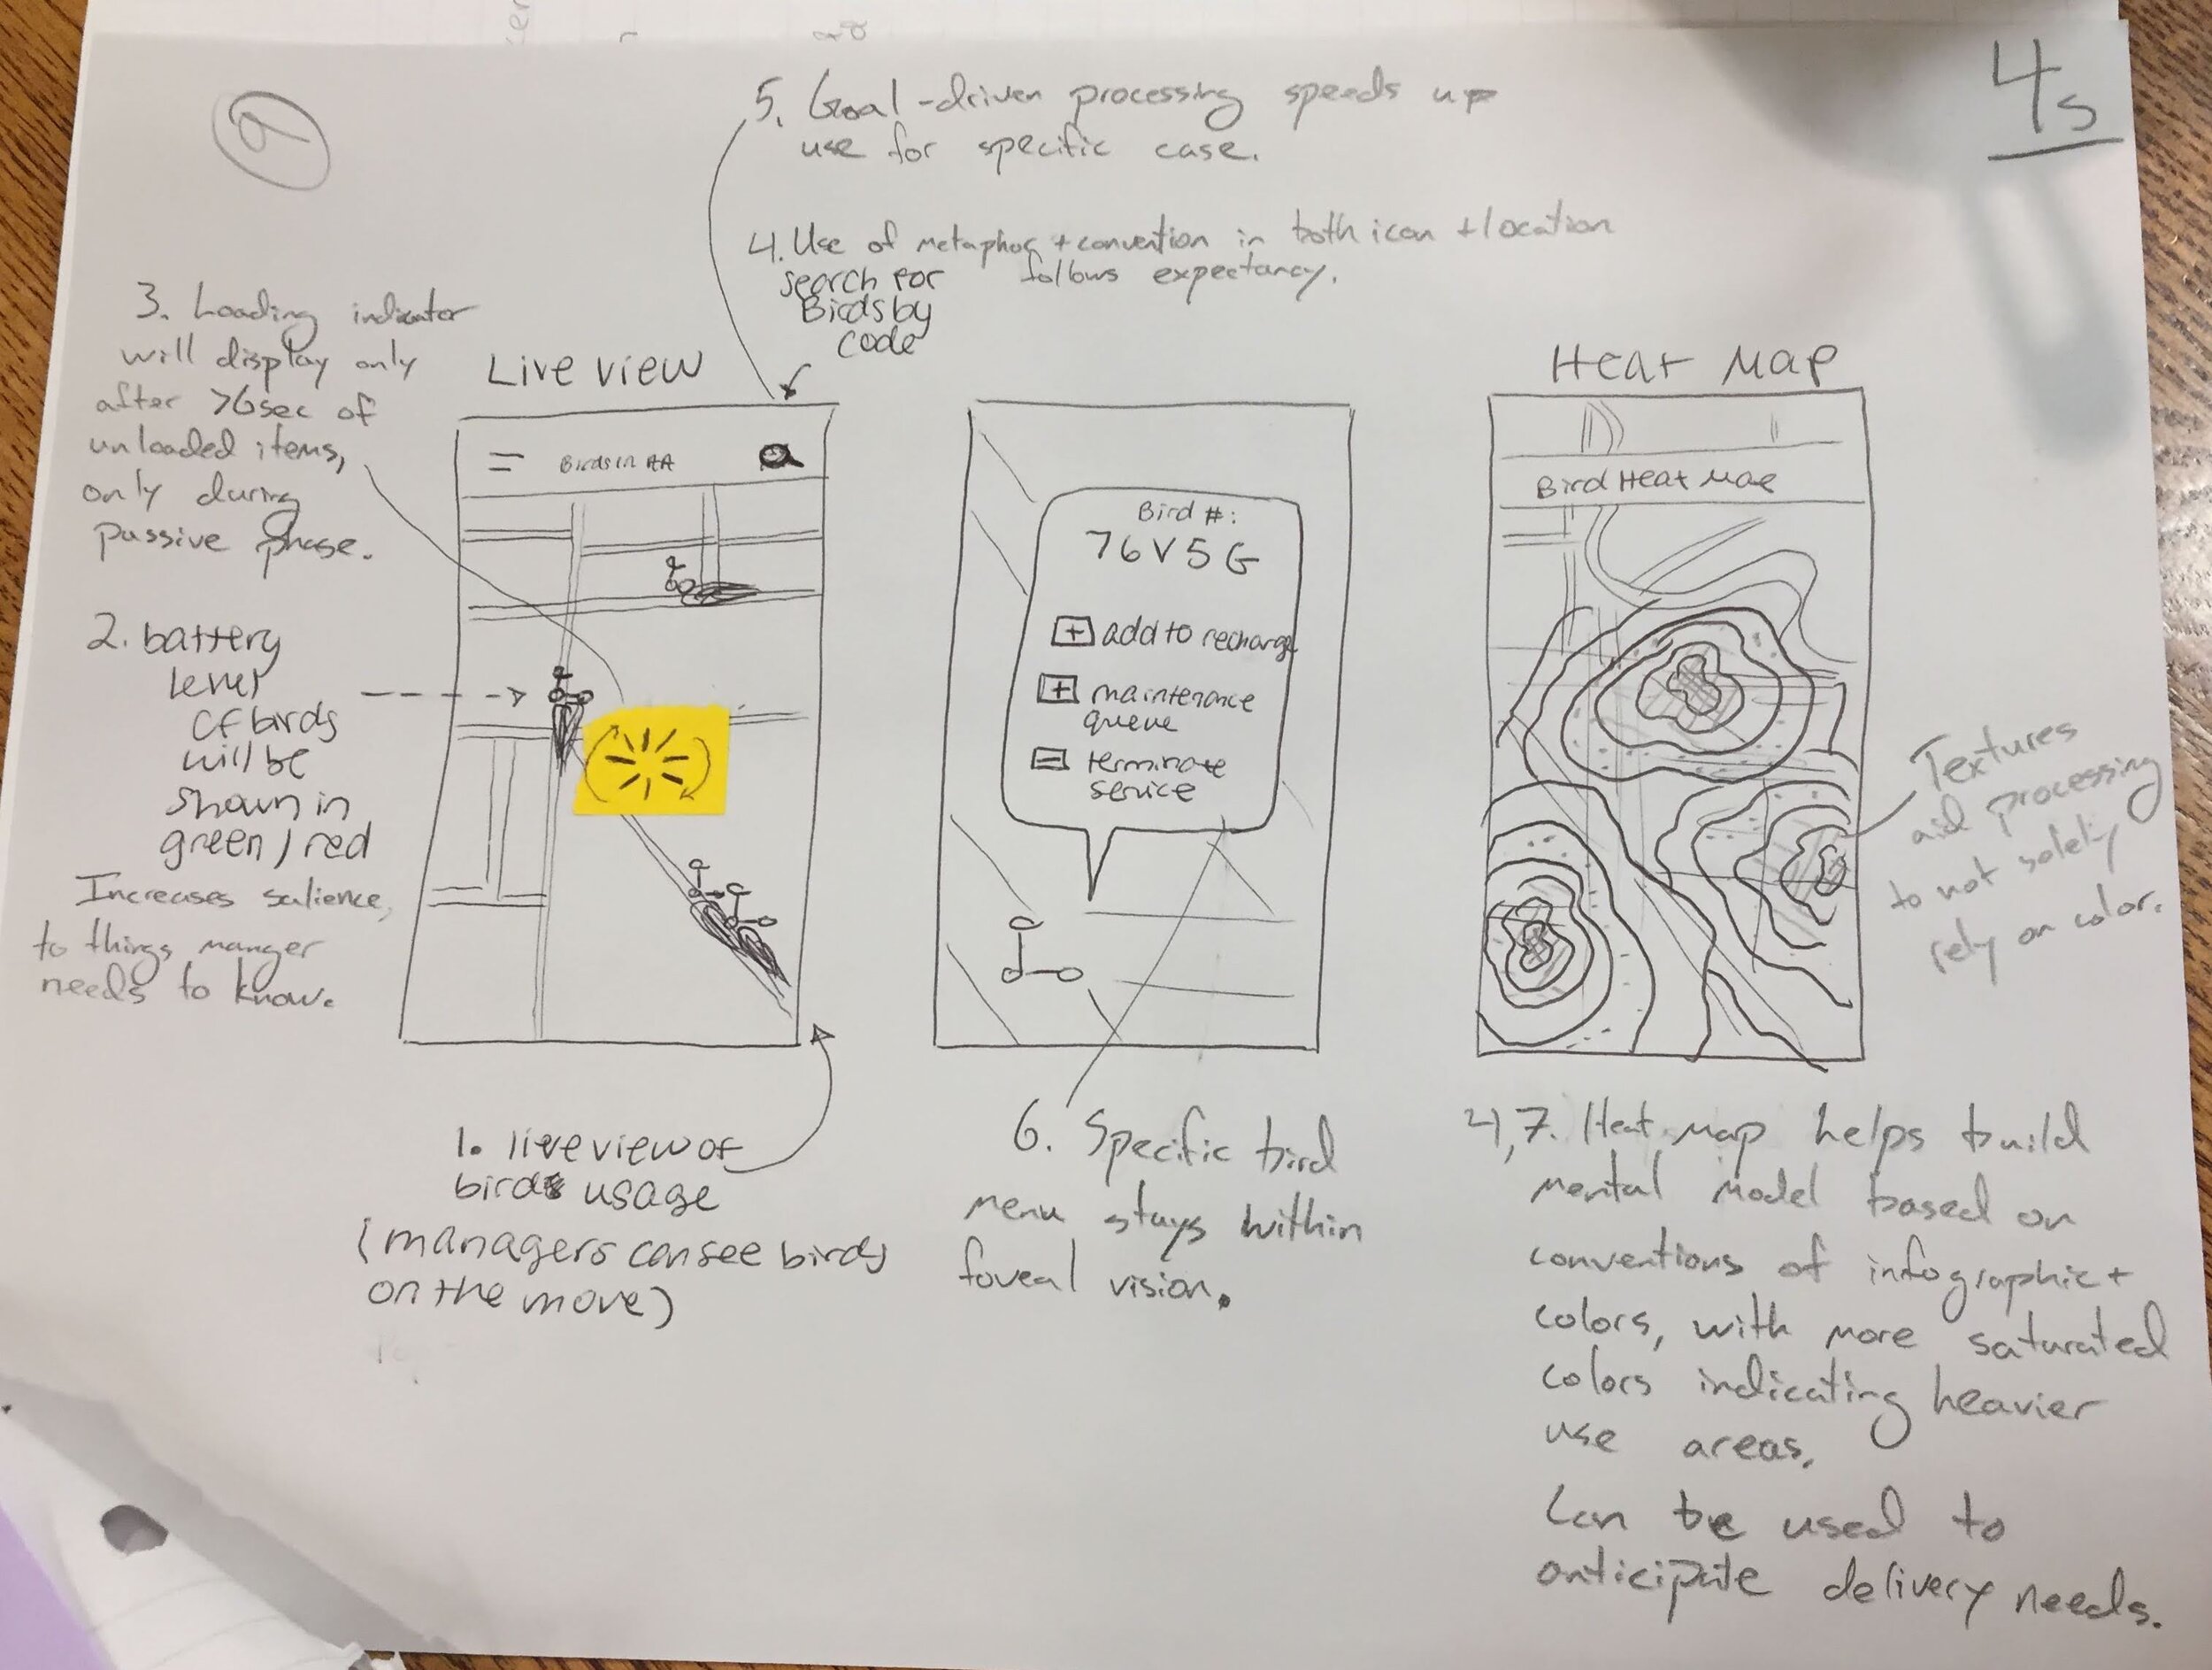 4s
5. Goal-driven processing speeds up
use for specific case.
4. Use of metaphor + convention in both icon + location
follows expectancy.
search for
Birds by
code
3. Loading indicator
will display only
after >6sec of
unloaded items,
only during
passive phase.
2. battery
level
of birds
will be
shown in
green/red
Increases salience,
to things manger
needs to know.
Live view
Birds in AA
1. live view of
birds usage
(managers can see birds
on the move)
Bird #:
76V5G
+ add to recharge
+ maintenance
queue
- terminate
service
6. Specific bird
menu stays within
foveal vision.
Heat Map
Bird Heat Map
Textures
aid processing
to not solely
rely on color.
4,7. Heat map helps build
mental model based on
conventions of infographic +
colors, with more saturated
colors indicating heavier
use areas.
Can be used to
anticipate delivery needs.